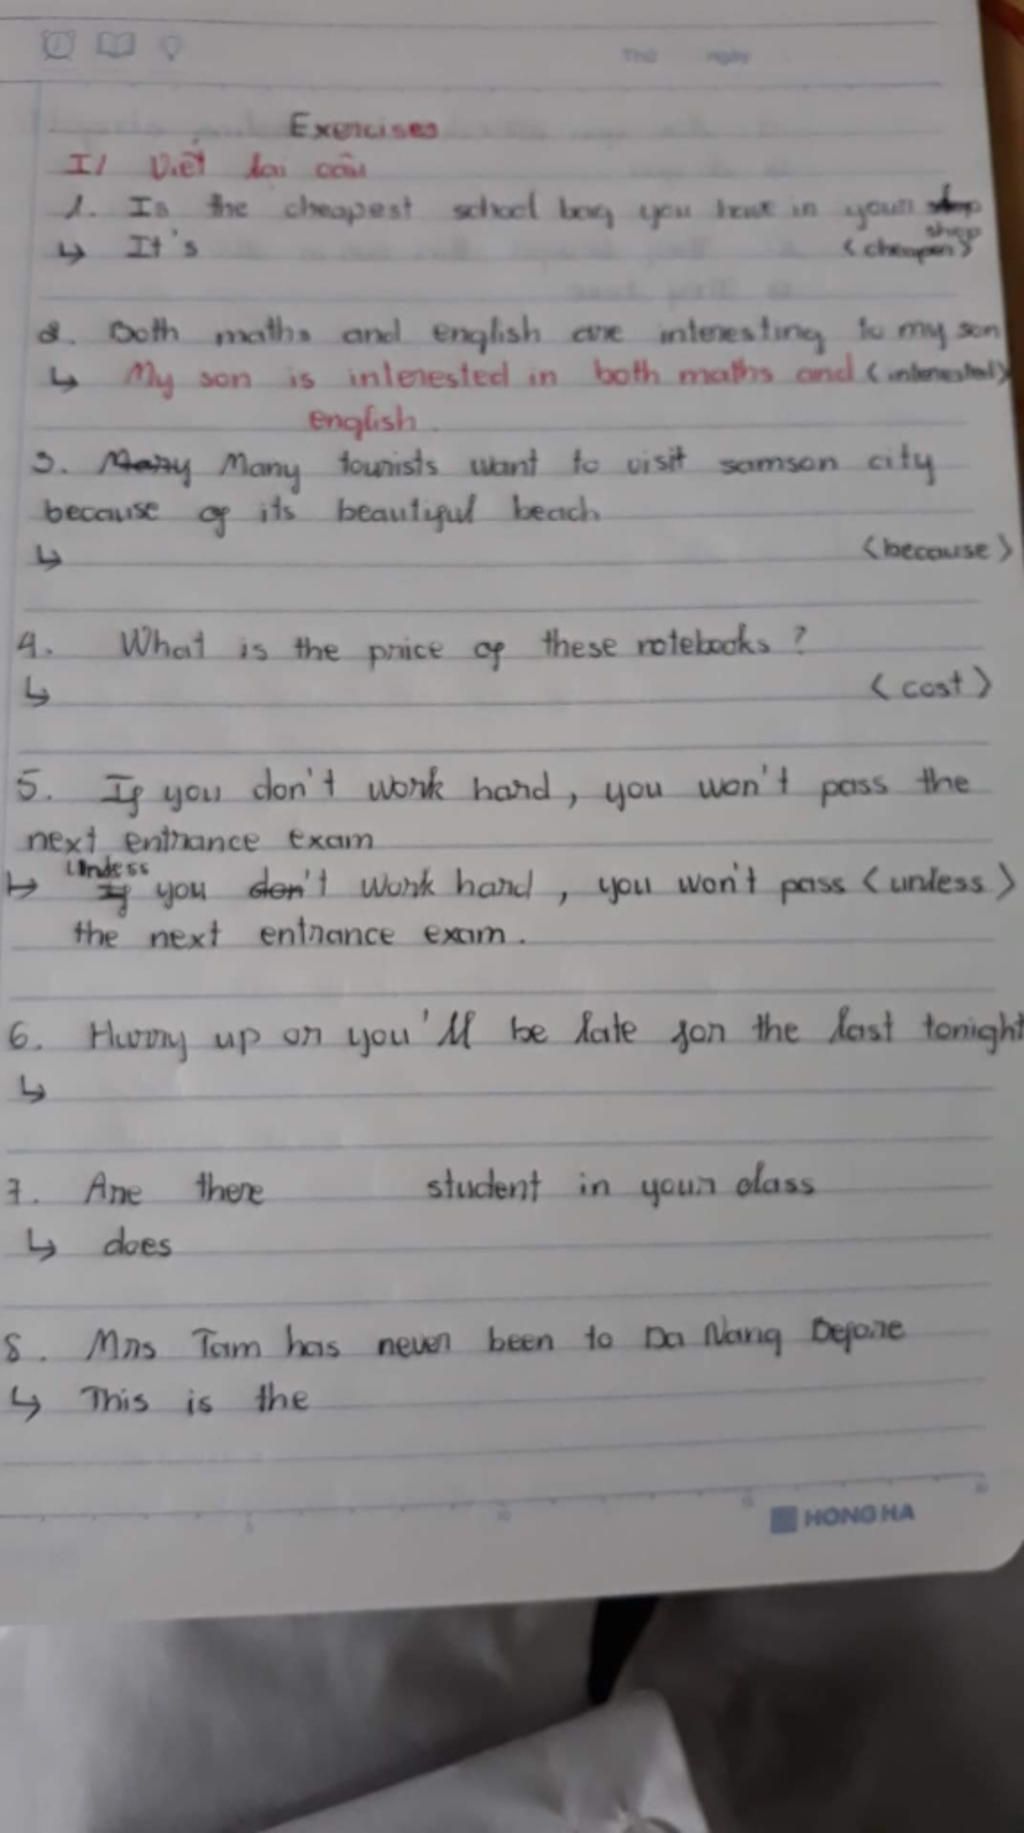 Thứ ngày
Exercises
I/ Viết lại câu
1. Is the cheapest school bag you have in your shop
↳ It's <cheaper>
2. Both maths and english are interesting to my son
↳ My son is interested in both maths and <interested>
english.
3. Many Many tourists want to visit samson city
because of its beautiful beach
↳ <because>
4. What is the price of these notebooks ?
↳ <cost>
5. If you don't work hard, you won't pass the
next entrance exam
Unless
↳ If you don't work hard, you won't pass <unless>
the next entrance exam.
6. Hurry up or you'll be late for the last tonight
↳
7. Are there student in your class
↳ does
8. Mrs Tam has never been to Da Nang Before
↳ This is the
HONG HA